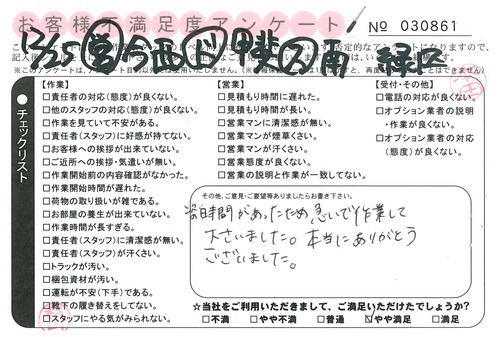 お客様不満足度アンケート
№ 030861
緑区
チェックリスト
【作業】
□責任者の対応(態度)が良くない。
□他のスタッフの対応(態度)が良くない。
□作業を見ていて不安がある。
□責任者(スタッフ)に好感が持てない。
□お客様への挨拶が出来ていない。
□ご近所への挨拶・気遣いが無い。
□作業開始前の内容確認がなかった。
□作業開始時間が遅れた。
□荷物の取り扱いが雑である。
□お部屋の養生が出来ていない。
□作業時間が長すぎる。
□責任者(スタッフ)に清潔感が無い。
□責任者(スタッフ)が汗くさい。
□トラックが汚い。
□梱包資材が汚い。
□運転が不安(下手)である。
□靴下の履き替えをしてない。
□スタッフにやる気がみられない。
【営業】
□見積もり時間に遅れた。
□見積もり時間が長い。
□営業マンに清潔感が無い。
□営業マンが煙草くさい。
□営業マンが汗くさい。
□営業態度が良くない。
□営業の説明と作業が一致してない。
【受付・その他】
□電話の対応が良くない。
□オプション業者の説明
・作業が良くない。
□オプション業者の対応
(態度)が良くない。
その他、ご意見・ご要望等ありましたらお書き下さい。
時間があったため急いで作業して
下さいました。本当にありがとう
ございました。
☆当社をご利用いただきまして、ご満足いただけたでしょうか?
□不満 □やや不満 □普通 ☑やや満足 □満足